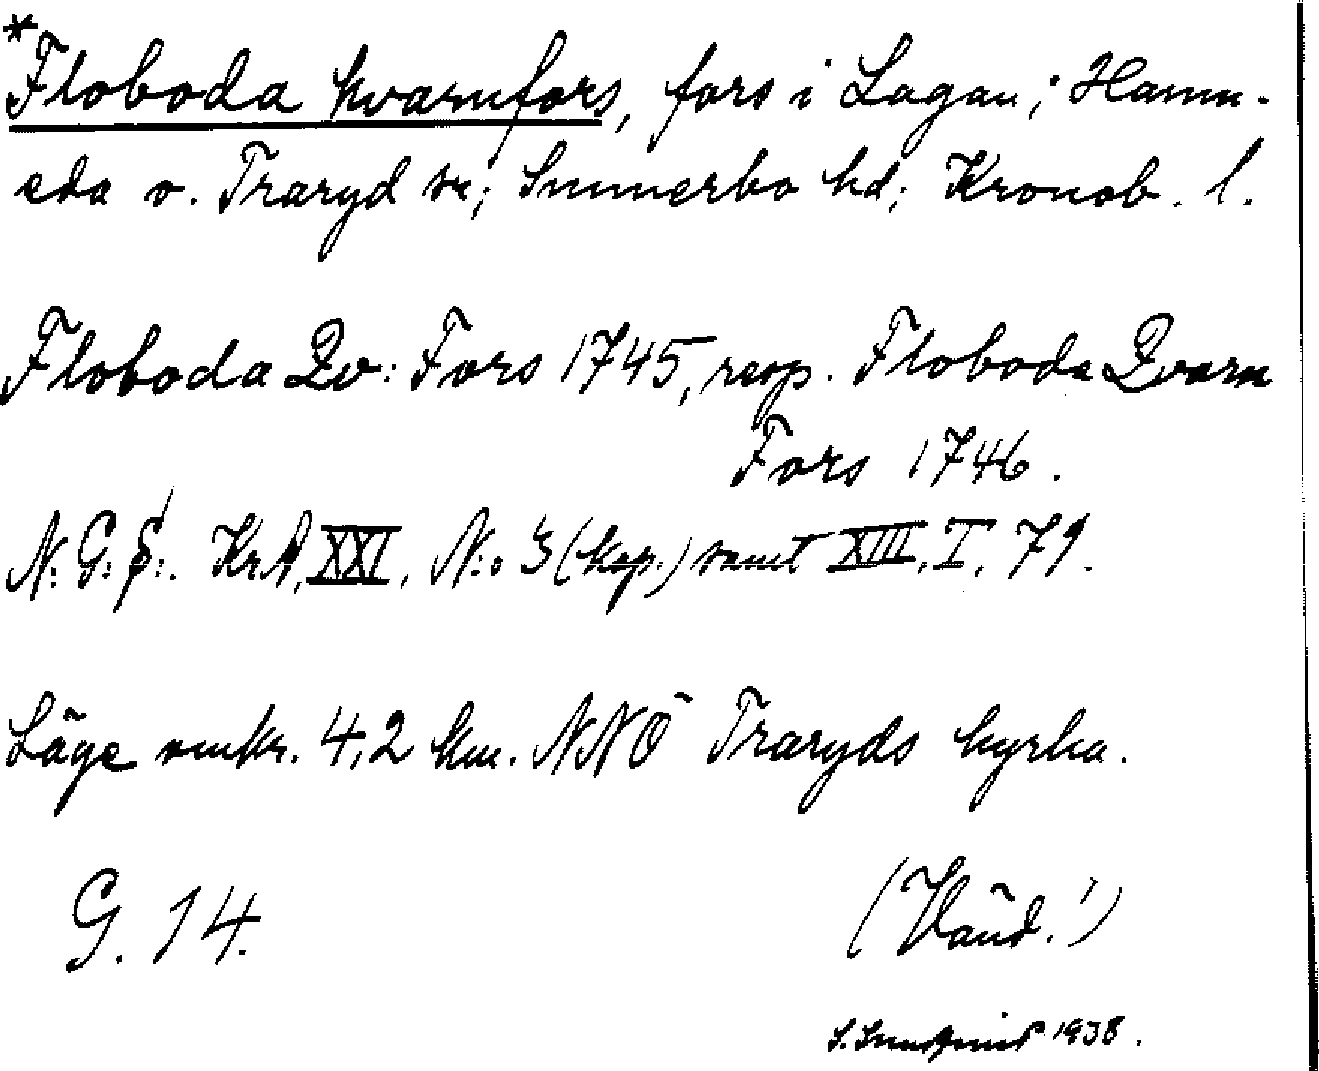 *Floboda kvarnfors, fors i Lagan; Hamn-
eda o. Traryd sn; Sunnerbo hd; Kronob. l.
Floboda Qv: Fors 1745, resp. Floboda Qvarn
Fors 1746.
N: G: §:. KrA, XXI, N:o 3 (kop.) samt XIII, I, 79.
Läge omkr. 4,2 km. NNÖ Traryds kyrka.
G. 14.
(Vänd!)
S. 1938.